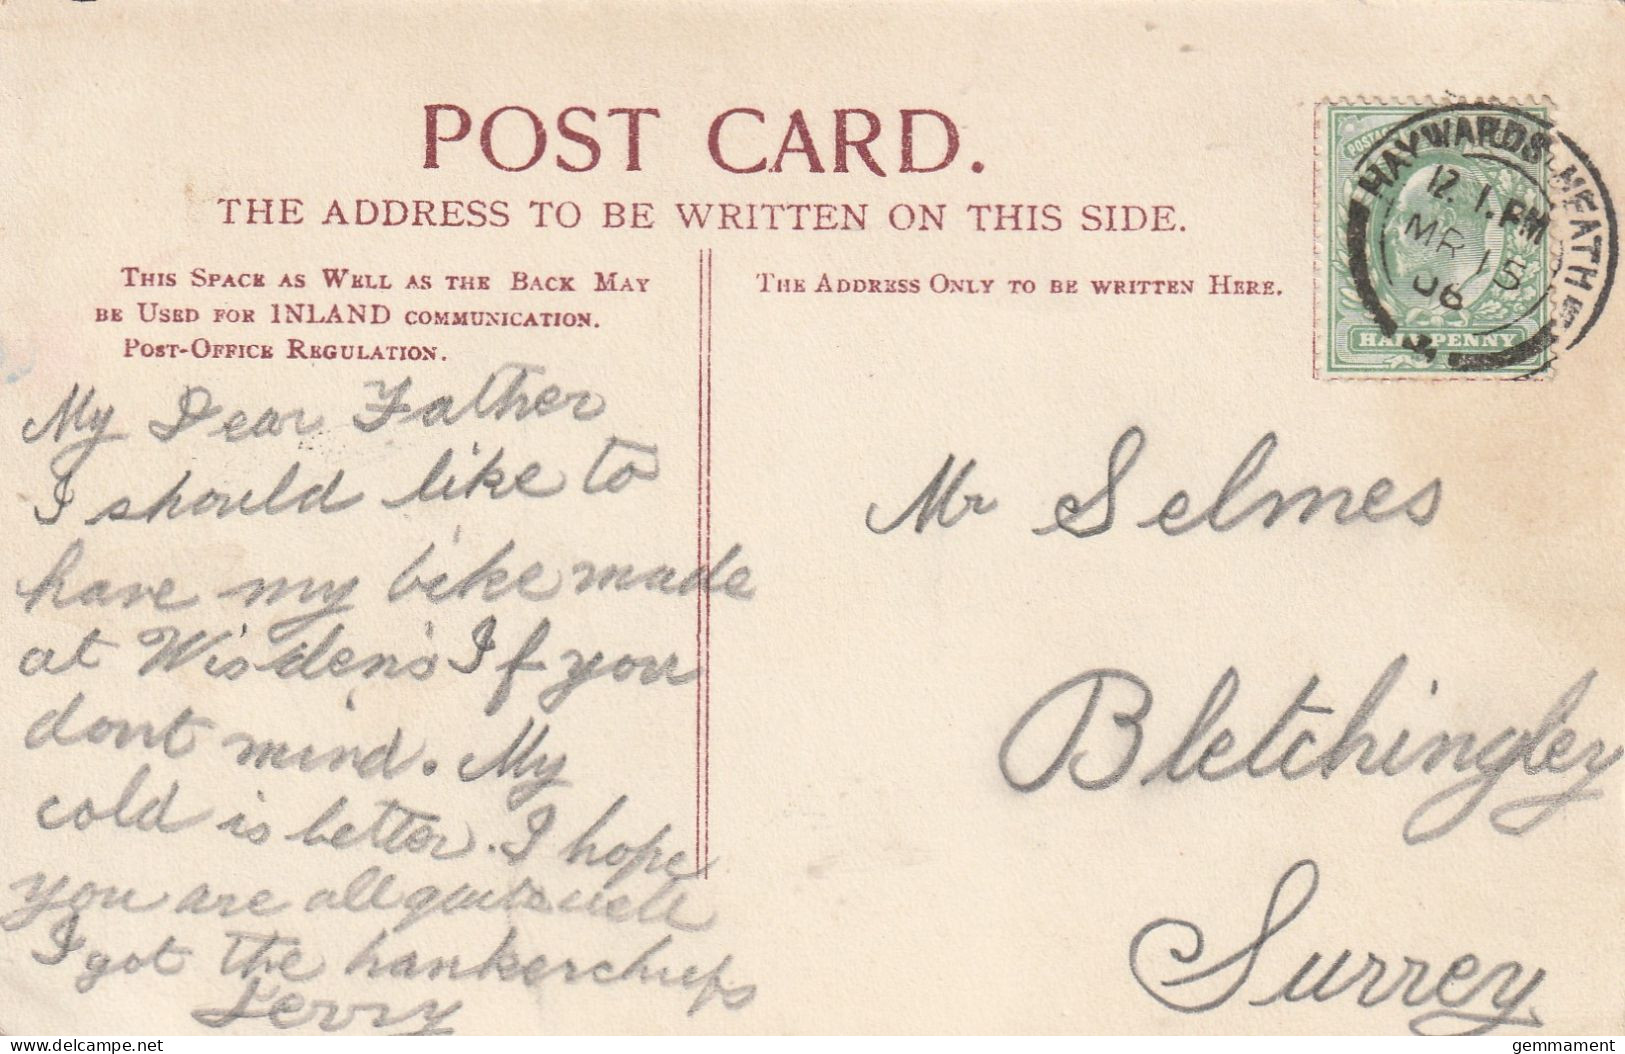 POST CARD.
THE ADDRESS TO BE WRITTEN ON THIS SIDE.
THIS SPACE AS WELL AS THE BACK MAY
BE USED FOR INLAND COMMUNICATION.
POST-OFFICE REGULATION.
THE ADDRESS ONLY TO BE WRITTEN HERE.
HAYWARDS-HEATH
12. 1. PM
MR 15
06
POSTAGE
HALFPENNY
My Dear Father
I should like to
have my bike made
at Wisden's If you
dont mind. My
cold is better. I hope
you are all quite well
I got the hankerchiefs
Mr Selmes
Bletchingley
Surrey
delcampe.net
gemmament